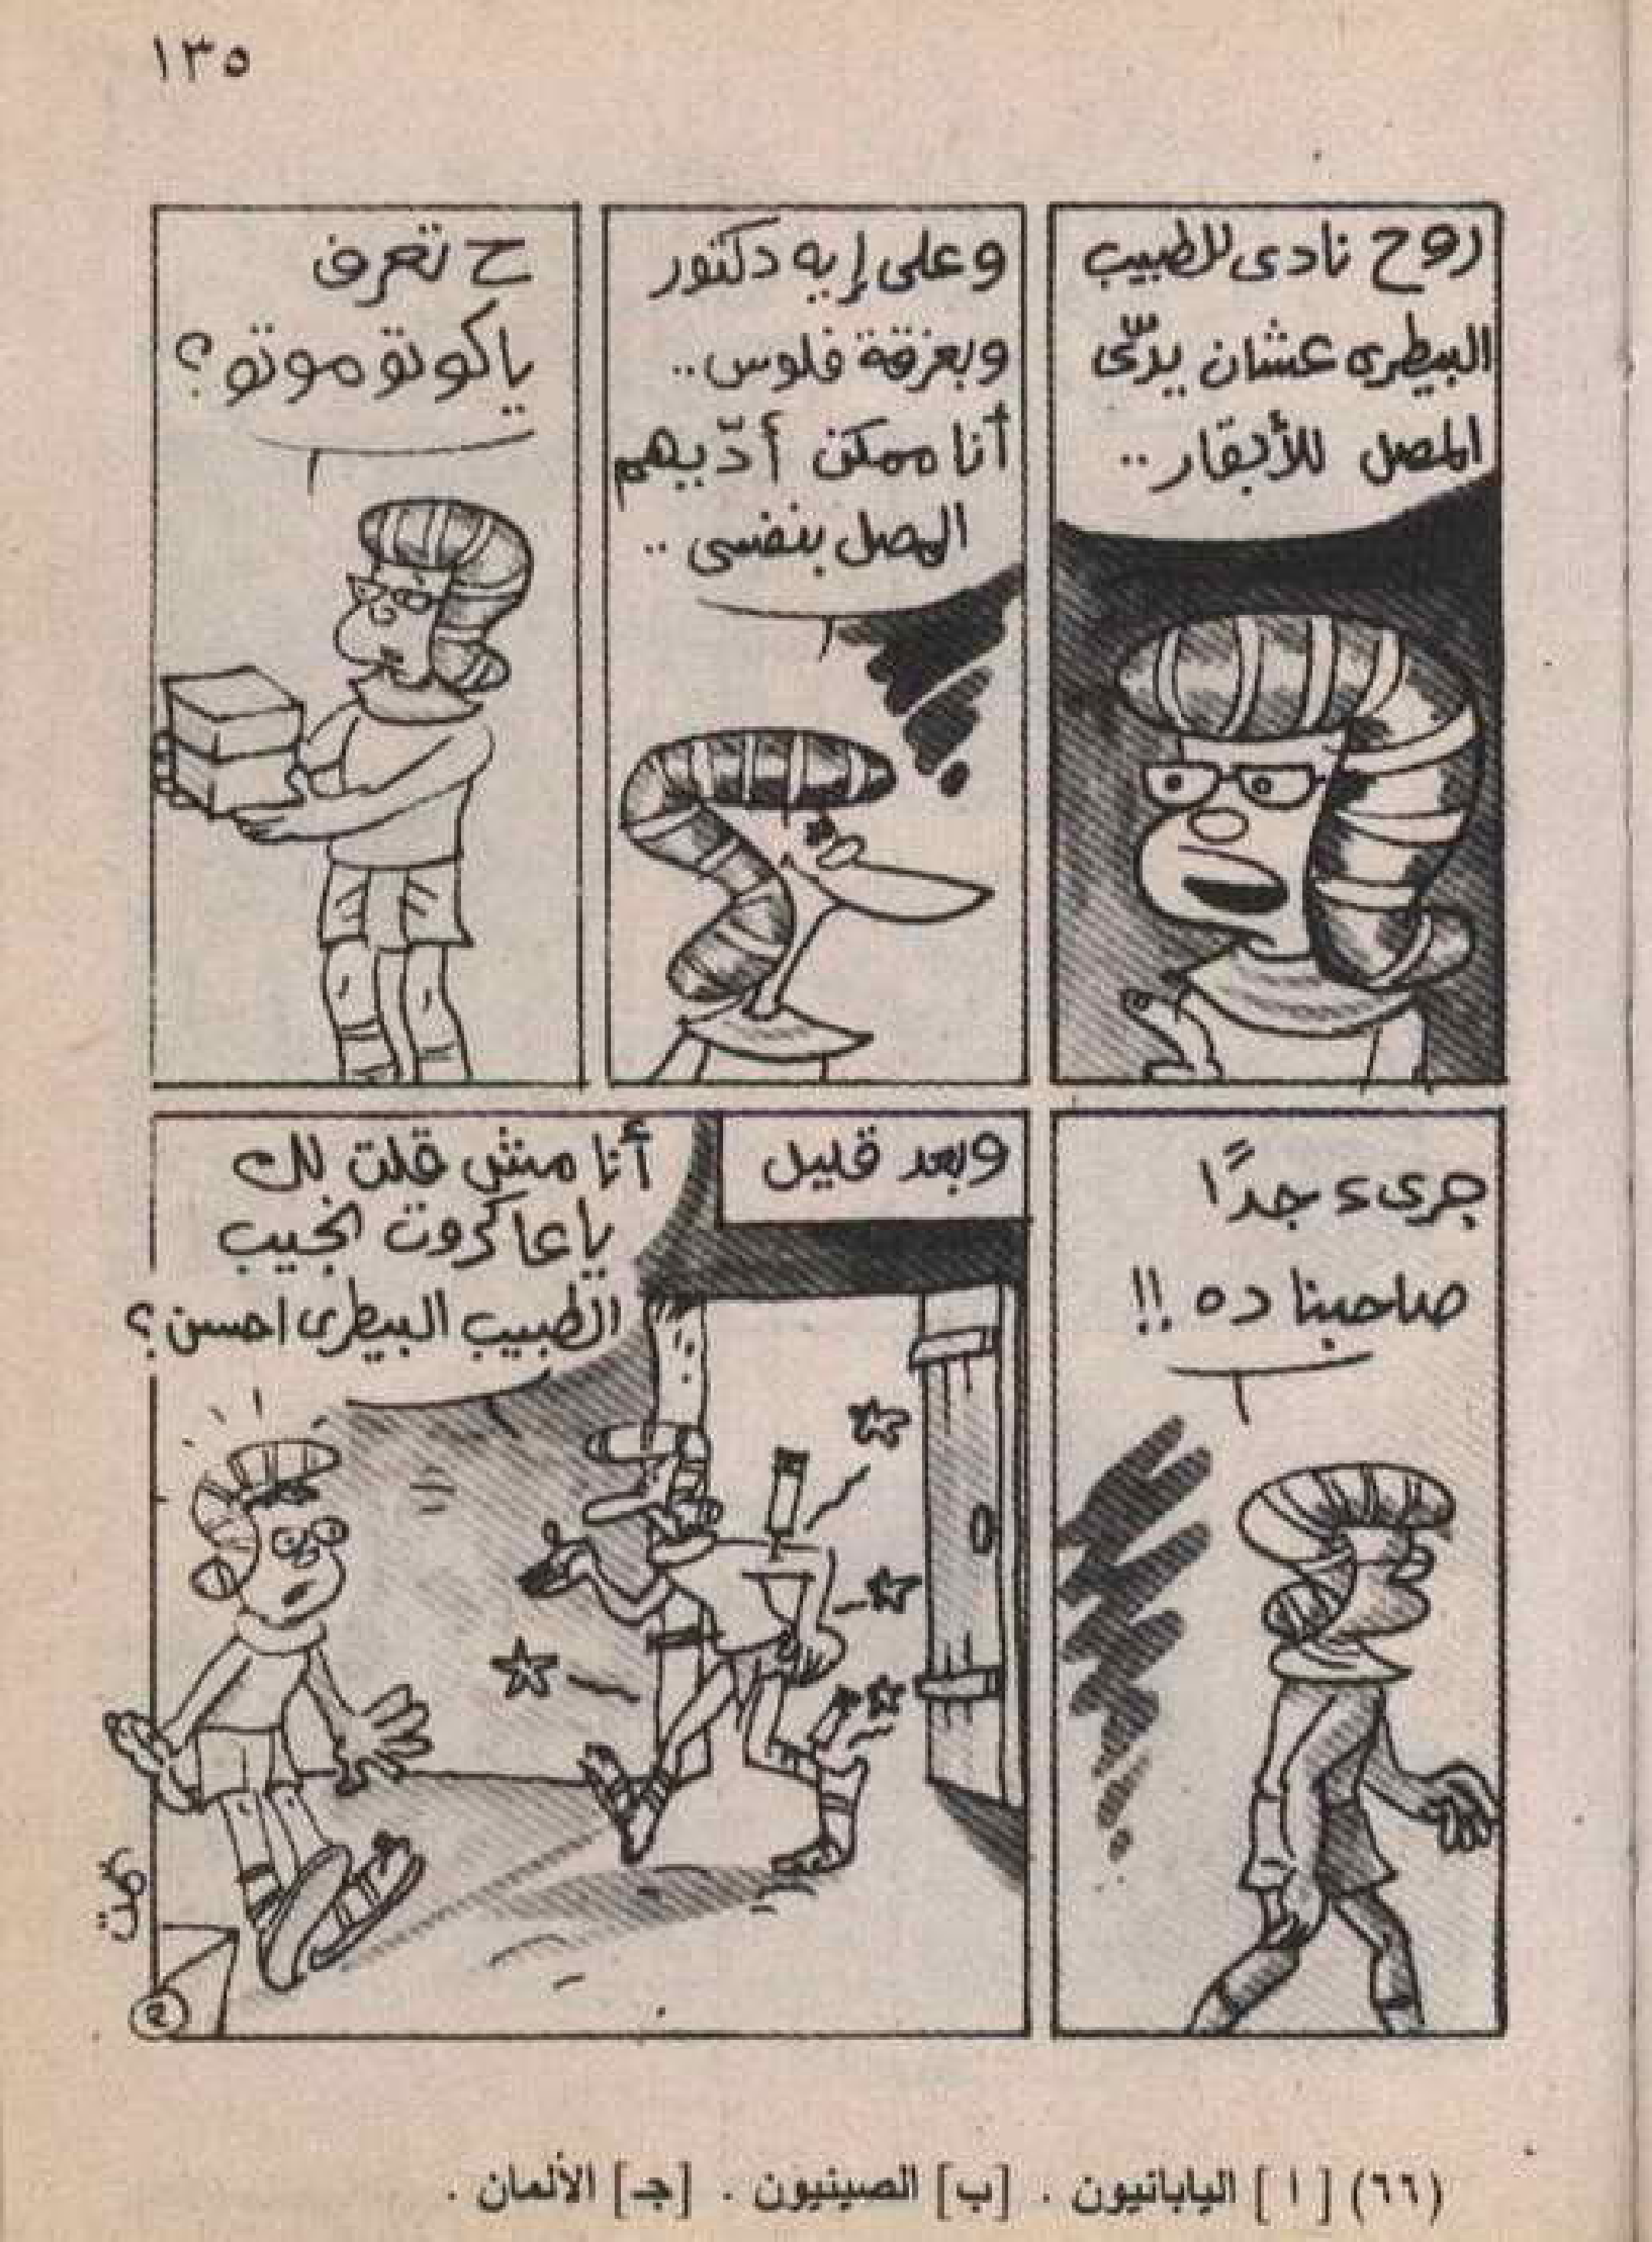 ١٣٥
روح نادى للطبيب
البيطرى عشان يدّى
المصل للأبقار ..
وعلى إيه دكتور
وبعزقة فلوس ..
أنا ممكن أدّيهم
المصل بنفسى ..
ح تعرف
ياكوتوموتو ؟
جرىء جدًا
صاحبنا ده !!
وبعد قليل
أنا مش قلت لك
ياعاكروت اجيب
الطبيب البيطرى احسن ؟
(٦٦) [ ١ ] اليابانيون . [ب] الصينيون . [جـ] الألمان .